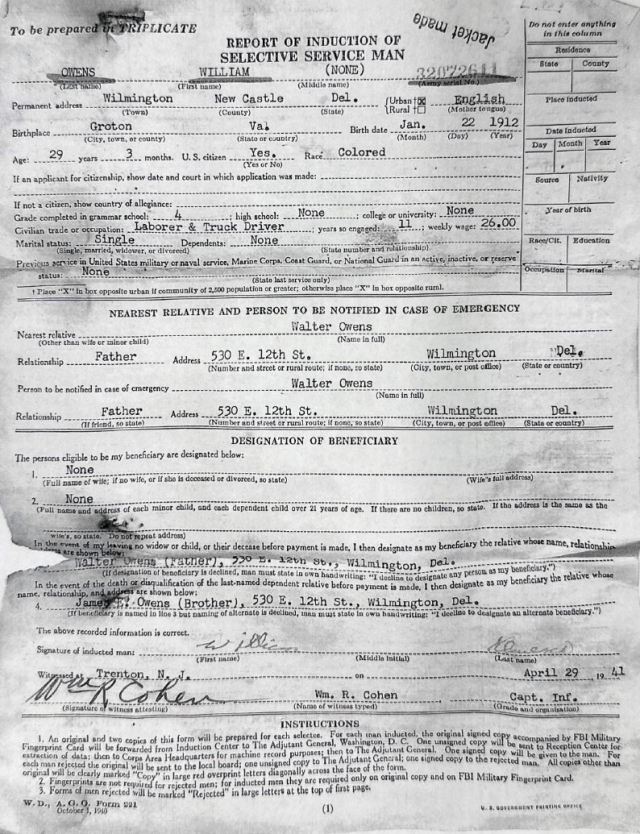 To be prepared in TRIPLICATE
Jacket made
REPORT OF INDUCTION OF
SELECTIVE SERVICE MAN
OWENS WILLIAM (NONE) 32072641
(Last name) (First name) (Middle name) (Army serial No.)
Permanent address Wilmington New Castle Del. (Urban† ☒ English
(Town) (County) (State) (Rural† ☐ (Mother tongue)
Birthplace Groton Va. Birth date Jan. 22 1912
(City, town, or county) (State or country) (Month) (Day) (Year)
Age: 29 years 3 months. U.S. citizen Yes. Race Colored
(Yes or No)
If an applicant for citizenship, show date and court in which application was made:
If not a citizen, show country of allegiance:
Grade completed in grammar school: 4 ; high school: None ; college or university: None
Civilian trade or occupation: Laborer & Truck Driver years so engaged: 11 ; weekly wage: 26.00
Marital status: Single Dependents: None
(Single, married, widower, or divorced) (State number and relationship)
Previous service in United States military or naval service, Marine Corps, Coast Guard, or National Guard in an active, inactive, or reserve
status: None
(State last service only)
† Place "X" in box opposite urban if community of 2,500 population or greater; otherwise place "X" in box opposite rural.
Do not enter anything
in this column
Residence
State County
Place inducted
Date inducted
Day Month Year
Source Nativity
Year of birth
Race/Cit. Education
Occupation Marital
NEAREST RELATIVE AND PERSON TO BE NOTIFIED IN CASE OF EMERGENCY
Nearest relative Walter Owens
(Other than wife or minor child) (Name in full)
Relationship Father Address 530 E. 12th St. Wilmington Del.
(Number and street or rural route; if none, so state) (City, town, or post office) (State or country)
Person to be notified in case of emergency Walter Owens
(Name in full)
Relationship Father Address 530 E. 12th St. Wilmington Del.
(If friend, so state) (Number and street or rural route; if none, so state) (City, town, or post office) (State or country)
DESIGNATION OF BENEFICIARY
The persons eligible to be my beneficiary are designated below:
1. None
(Full name of wife; if no wife, or if she is deceased or divorced, so state) (Wife's full address)
2. None
(Full name and address of each minor child, and each dependent child over 21 years of age. If there are no children, so state. If the address is the same as the
wife's, so state. Do not repeat address)
In the event of my leaving no widow or child, or their decease before payment is made, I then designate as my beneficiary the relative whose name, relationship
are shown below:
Walter Owens (Father), 530 E. 12th St., Wilmington, Del.
(If designation of beneficiary is declined, man must state in own handwriting: "I decline to designate any person as my beneficiary.")
In the event of the death or disqualification of the last-named dependent relative before payment is made, I then designate as my beneficiary the relative whose
name, relationship, and address are shown below:
4. James E. Owens (Brother), 530 E. 12th St., Wilmington, Del.
(If beneficiary is named in line 3 but naming of alternate is declined, man must state in own handwriting: "I decline to designate an alternate beneficiary.")
The above recorded information is correct.
Signature of inducted man: William Owens
(First name) (Middle initial) (Last name)
Witnessed at Trenton, N. J. on April 29 1941
Wm R Cohen Wm. R. Cohen Capt. Inf.
(Signature of witness attesting) (Name of witness typed) (Grade and organization)
INSTRUCTIONS
1. An original and two copies of this form will be prepared for each selectee. For each man inducted, the original signed copy accompanied by FBI Military
Fingerprint Card will be forwarded from Induction Center to The Adjutant General, Washington, D. C. One unsigned copy will be sent to Reception Center for
extraction of data; then to Corps Area Headquarters for machine record purposes; then to The Adjutant General. One signed copy will be given to the man. For
each man rejected the original will be sent to the local board; one unsigned copy to The Adjutant General; one signed copy to the rejected man. All copies other than
original will be clearly marked "Copy" in large red overprint letters diagonally across the face of the form.
2. Fingerprints are not required for rejected men; for inducted men they are required only on original copy and on FBI Military Fingerprint Card.
3. Forms of men rejected will be marked "Rejected" in large letters at the top of first page.
W. D., A. G. O. Form 221
October 1, 1940
(1)
U. S. GOVERNMENT PRINTING OFFICE